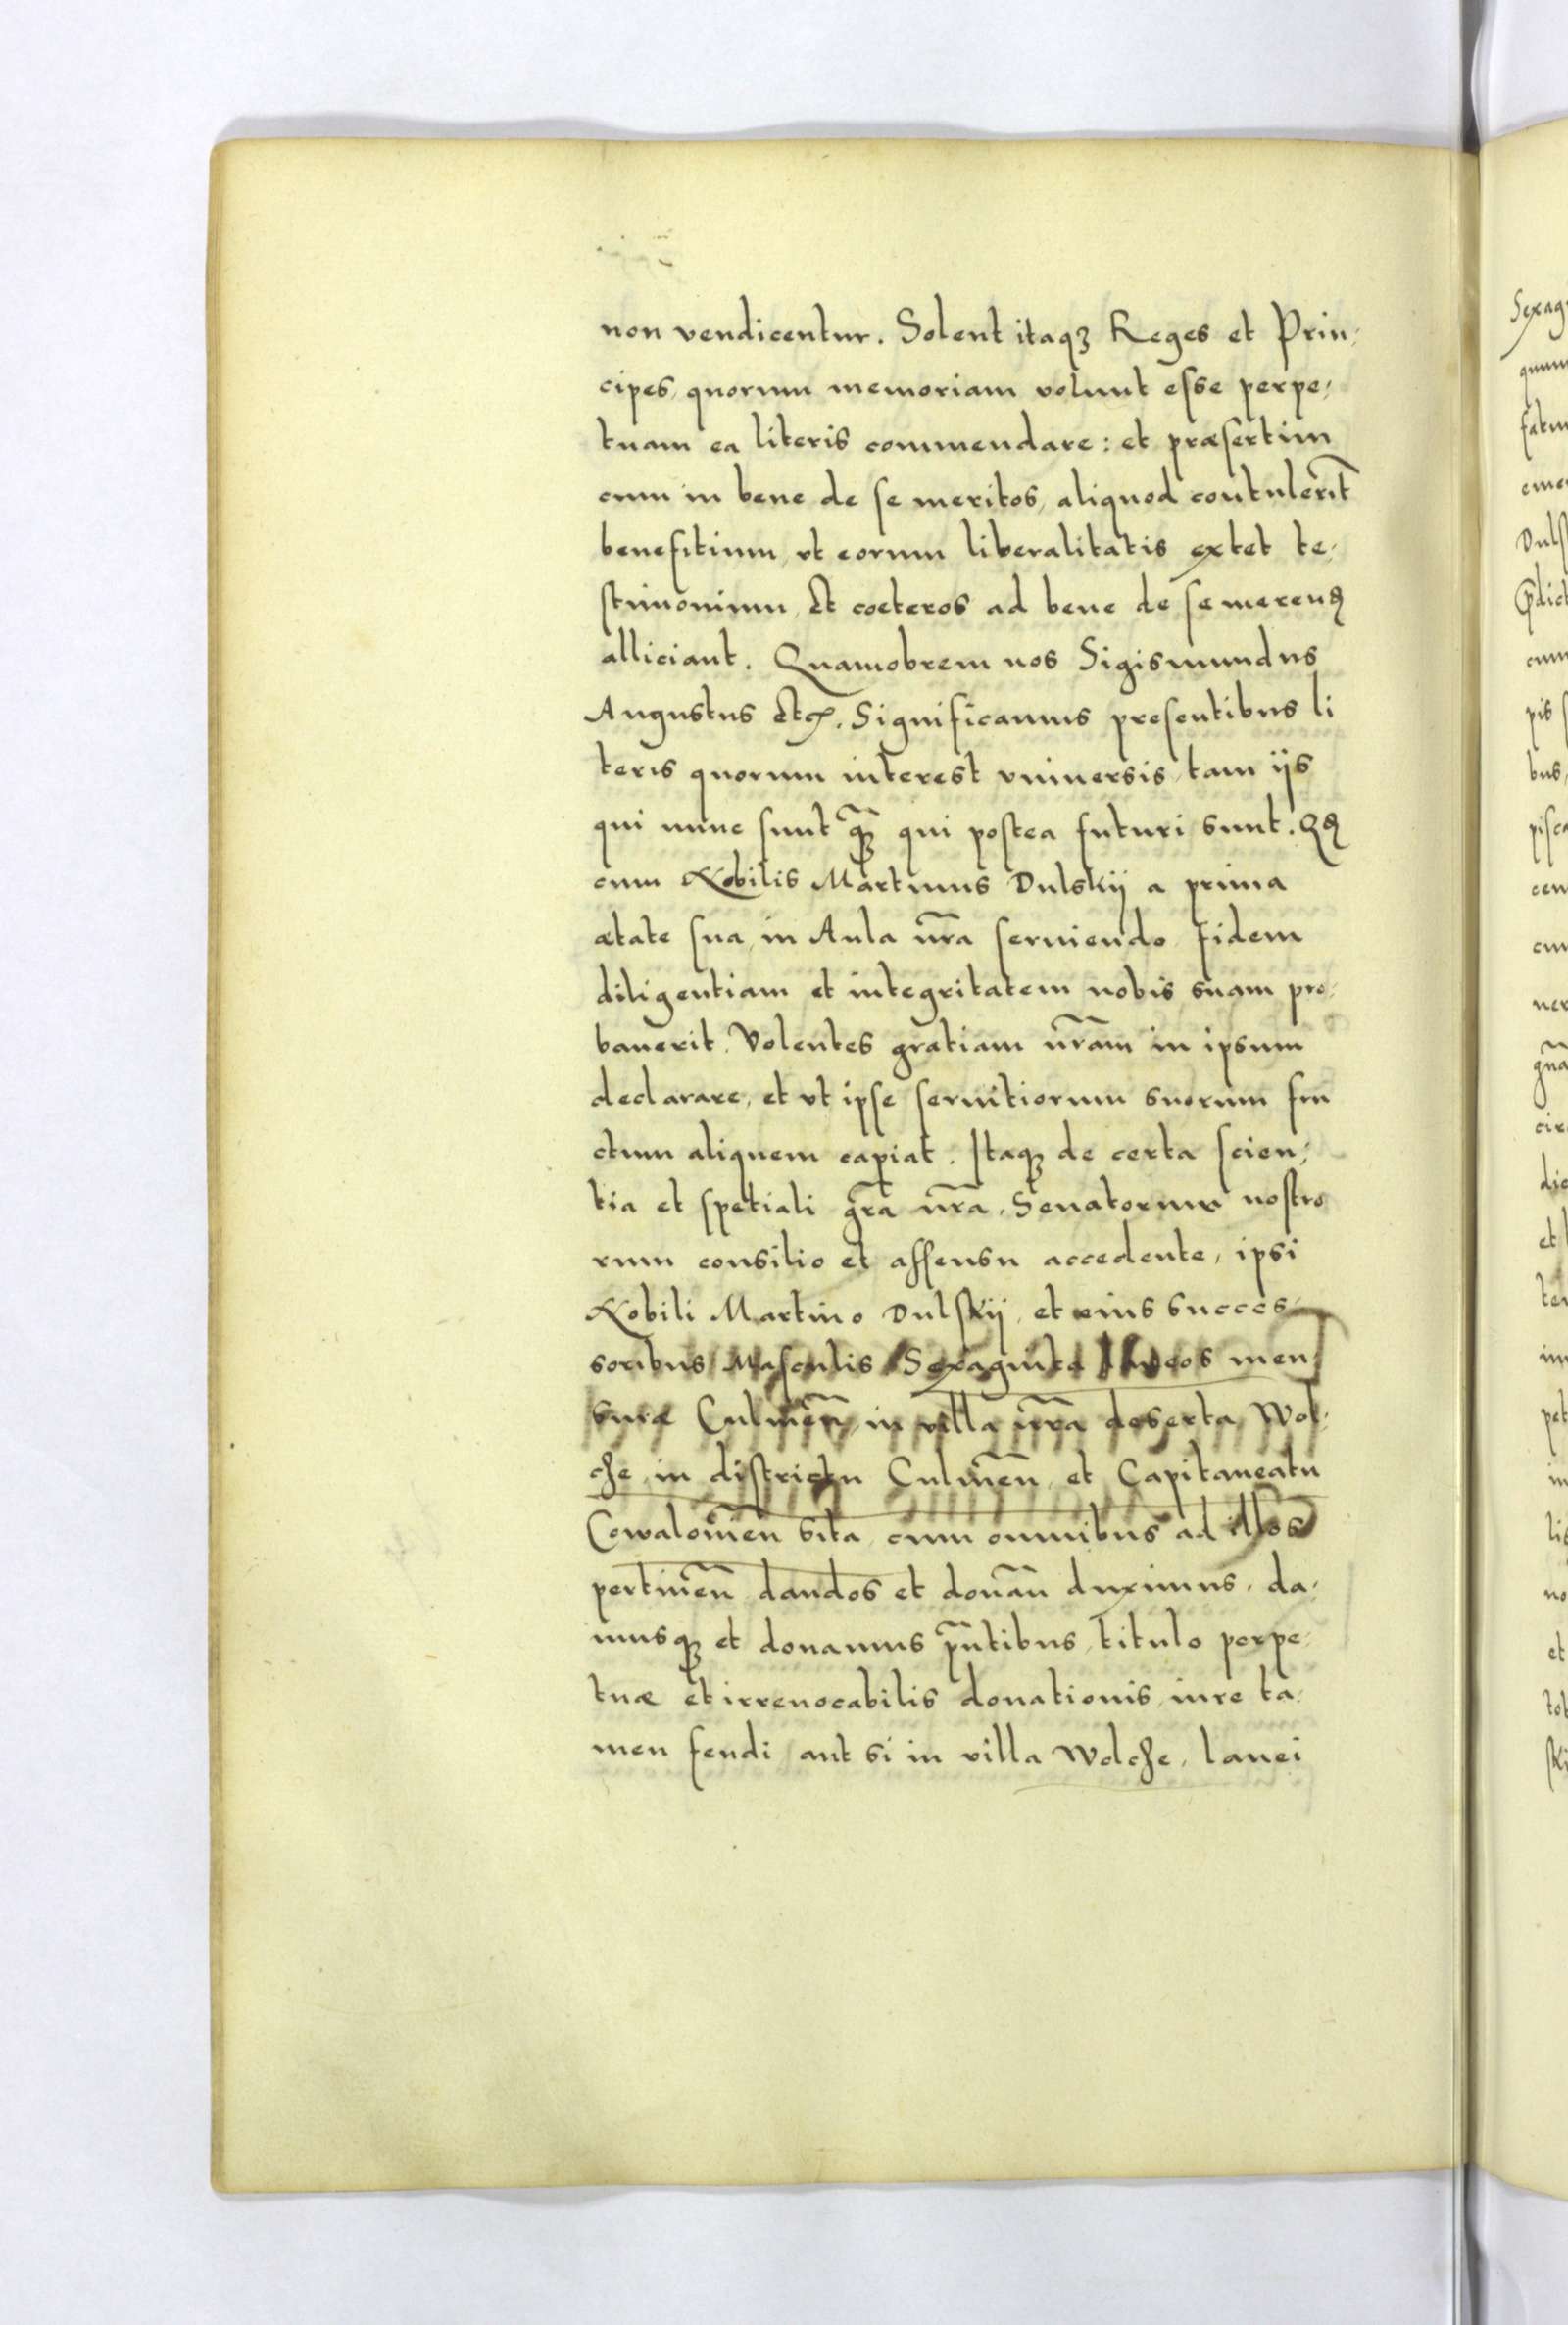 non vendicentur. Solent itaqʒ Reges et Prin,
cipes, quorum memoriam volunt eſse perpe,
tuam ea literis commendare: et præſertim
cum in bene de ſe meritos, aliquod contulerīt
benefitium, vt eorum liberalitatis extet te,
ſtimonium, Et coeteros ad bene de ſe merenꝺ
alliciant. Quamobrem nos Sigismundus
Augustus Etc. Significamus preſentibus li
teris quorum interest vniuersis, tam ijs
qui nunc ſunt q̃ꝫ qui poſtea futuri sunt. Qꝺ
cum Nobilis Martinus Dulskij a prima
ætate ſua, in Aula nr̃a ſeruiendo fidem
diligentiam et integritatem nobis suam pro,
bauerit. Volentes gratiam nr̃am in ipsum
declarare, et vt ipſe ſeruitiorum suorum fru
ctum aliquem capiat. Itaqꝫ de certa ſcien,
tia et ſpetiali gr̃a nr̃a, Senatorum noſtro
rum consilio et aſſensu accedente, ipsi
Nobili Martino Dulſkij, et eius succes,
soribus Maſculis Sexaginta laneos men
suræ Culmeñ, in villa nr̃a deserta Wol,
che, in diſtrictu Culmeñ, et Capitaneatu
Cowaloẃieñ sita, cum omnibus ad illos
pertineñ dandos et donañ duximus, da,
musqꝫ et donamus pñtibus, titulo perpe,
tuæ et irreuocabilis donationis, iure ta,
men feudi, aut si in villa Wolche, lanei
Sexag
quum
fatu
eme
Dulſ
p̃dict
cum
pis
bus,
piſca
cen
cum
ner
gña
cir
dic
et
ter
im
pet
in
lis
no
et
tot
ſki